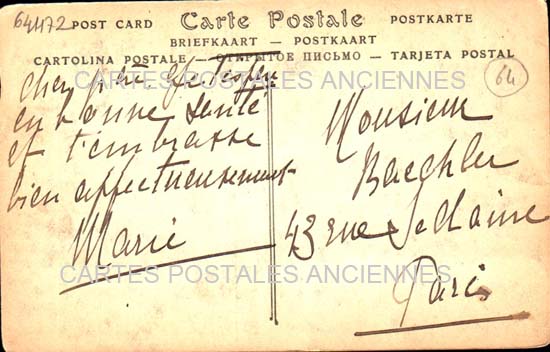 64472
POST CARD Carte Postale POSTKARTE
BRIEFKAART — POSTKAART
CARTOLINA POSTALE — ОТКРЫТОЕ ПИСЬМО — TARJETA POSTAL
64
CARTES POSTALES ANCIENNES
Cher
en bonne santé
et t'embrasse
bien affectueusement
Marie
Monsieur
Baechler
43 rue
Paris
CARTES POSTALES ANCIENNES